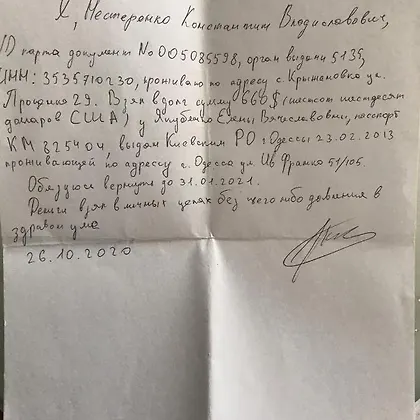 Я, Нестеренко Константин Владиславович,
ID карта документ №005085598, орган выдачи 5135,
ИНН: 3535710230, проживаю по адресу с. Крыжановка ул.
Троицкая 29. Взял в долг сумму 660$ (шестсот шестдесят
доларов США) у Якубенко Елены Вячеславовны, паспорт
КМ 825404, выдан Киевским РО г. Одессы 23.02.2013
проживающей по адресу г. Одесса ул Ив Франко 51/105.
Обязуюсь вернуть до 31.01.2021.
Деньги взял в личных целях без чего либо давления в
здравом уме
26.10.2020